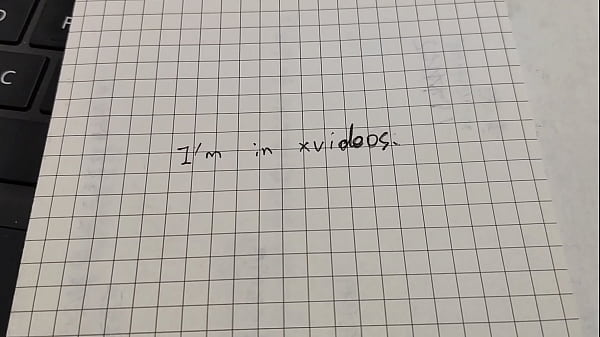 I'm in xvideos.
F
C